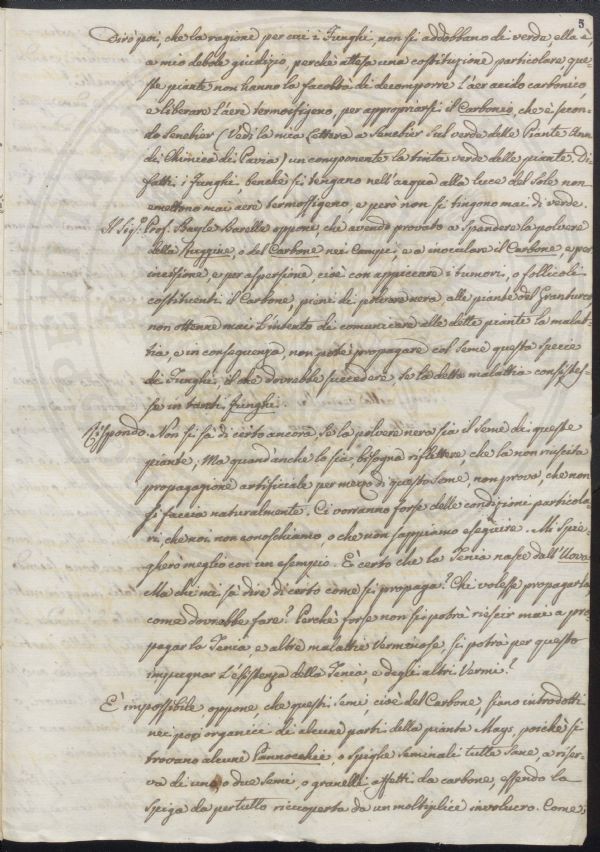 5
Dirò poi, che la ragione per cui i Funghi, non si addobbano di verde, ella è,
a mio debole giudizio, perchè attesa una costituzione particolare que-
ste piante non hanno la facoltà di decomporre l'aer acido carbonico,
e liberare l'aere termossigeno, per appropriarsi il Carbonio, che è secon-
do Senebier (Vedi la mia Lettera a Senebier sul verde delle Piante Ann.
di Chimica di Pavia) un componente la tinta verde delle piante. Di-
fatti i Funghi benchè si tengano nell'acqua alla luce del Sole non
emettono mai aere termossigeno, e però non si tingono mai di verde.
Il Sig.r Prof. Bayle Barelle oppone, che avendo provato a spandere la polvere
della Fuggine, o del Carbone nei Campi, e a inoculare il Carbone, e per
incisione, e per aspersione, cioè con appiccare i tumori, o follicoli
costituenti il Carbone, pieni di polvere nera, alle piante del Granturco
non ottenne mai l'intento di comunicare alle dette piante la malat-
tia, e in conseguenza non potè propagare col seme questa specie
di Funghi, il che dovrebbe succedere se la detta malattia consistes-
se in tanti funghi.
Rispondo. Non si sà di certo ancora se la polvere nera sia il seme di queste
piante; Ma quand'anche lo sia, bisogna riflettere, che la non riuscita
propagazione artificiale per mezzo di questo seme, non prova, che non
si faccia naturalmente. Ci vorranno forse delle condizioni particola-
ri, che noi non conoschiamo, o che non sappiamo eseguire. Mi spie-
gherò meglio con un esempio. È certo che la Tenia nasce dall'Uova
Ma chi ci sà dire di certo come si propaga? Chi volesse propagarla
come dovrebbe fare? Perchè forse non si potrà riescir mai a pro-
pagar la Tenia, e altre malattie Verminose, si potrà per questo
impugnar l'esistenza della Tenia, e degli altri Vermi?
È impossibile oppone, che questi semi, cioè del Carbone siano introdotti
nei pori organici di alcune parti della pianta Mays, poichè si
trovano alcune Pannocchie, o Spighe seminali tutte Sane, a riser-
va di uno, o due semi, o granelli affetti da carbone, essendo la
Spiga da pertutto ricoperta da un moltiplice involucro. Come,